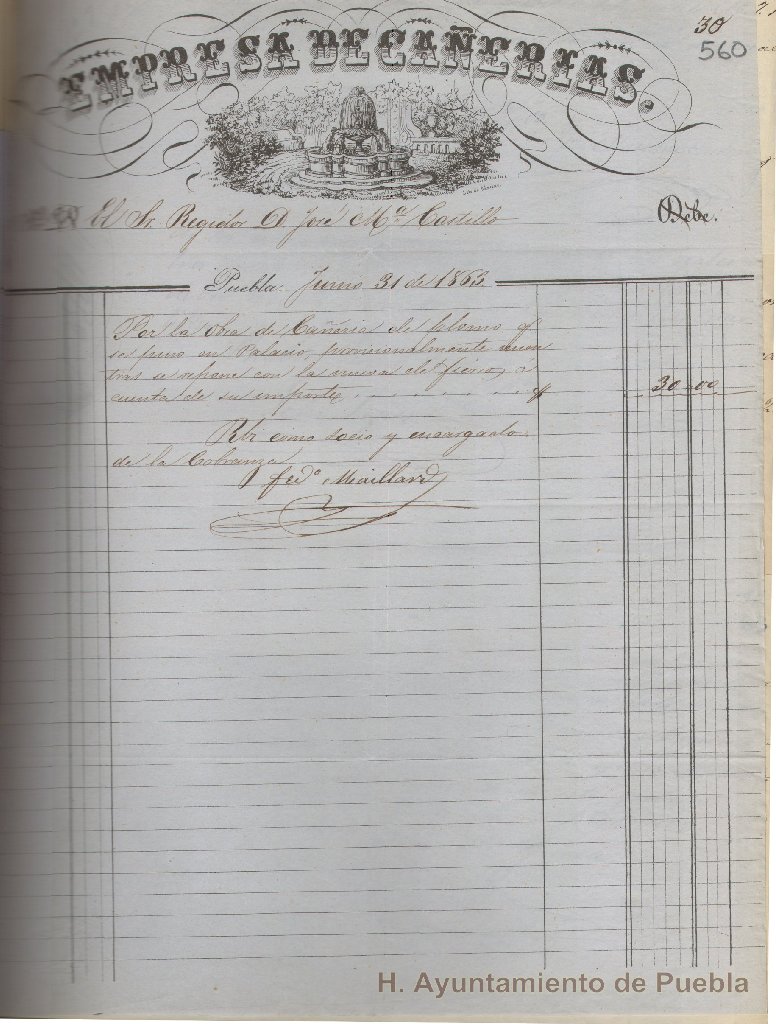 30
560
EMPRESA DE CAÑERIAS.
El Sr. Regidor D. José Ma. Castillo Debe.
Puebla. Junio 31 de 1863
Por la obra de Cañeria de plomo q
se puso en Palacio, provisionalmente mien
tras se repone con la nueva de fierro, a
cuenta de su importe $ 30 00
Rbi como socio y encargado
de la Cobranza
Fedo. Maillard
H. Ayuntamiento de Puebla